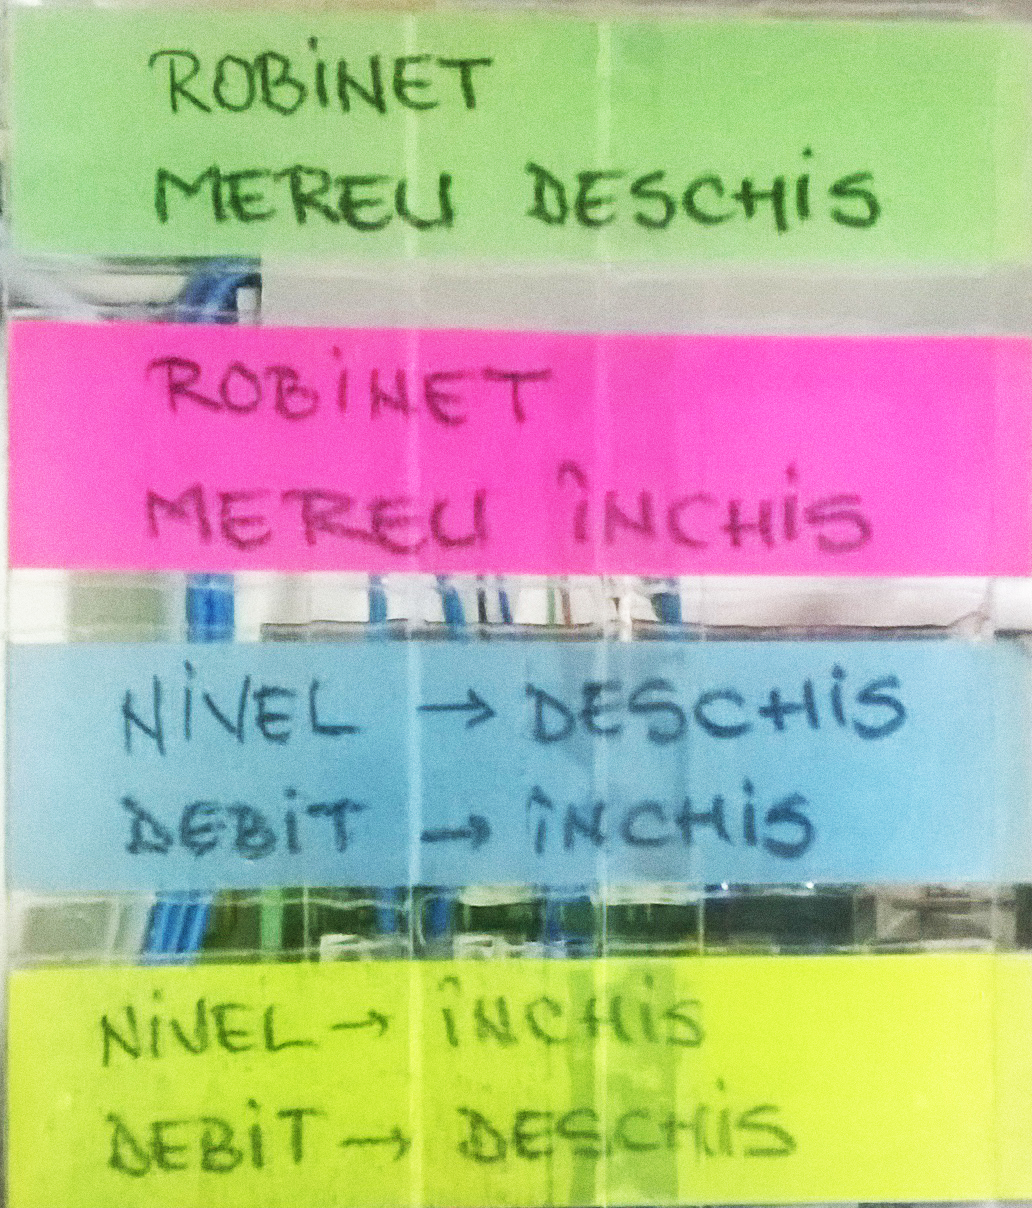 ROBINET
MEREU DESCHIS
ROBINET
MEREU ÎNCHIS
NIVEL → DESCHIS
DEBIT → ÎNCHIS
NIVEL → ÎNCHIS
DEBIT → DESCHIS